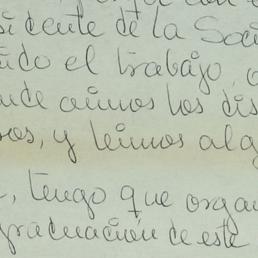 sidente de la Soci
ido el trabajo, o
nde oímos los dis
ros, y leímos alg
, tengo que organ
graduación de este